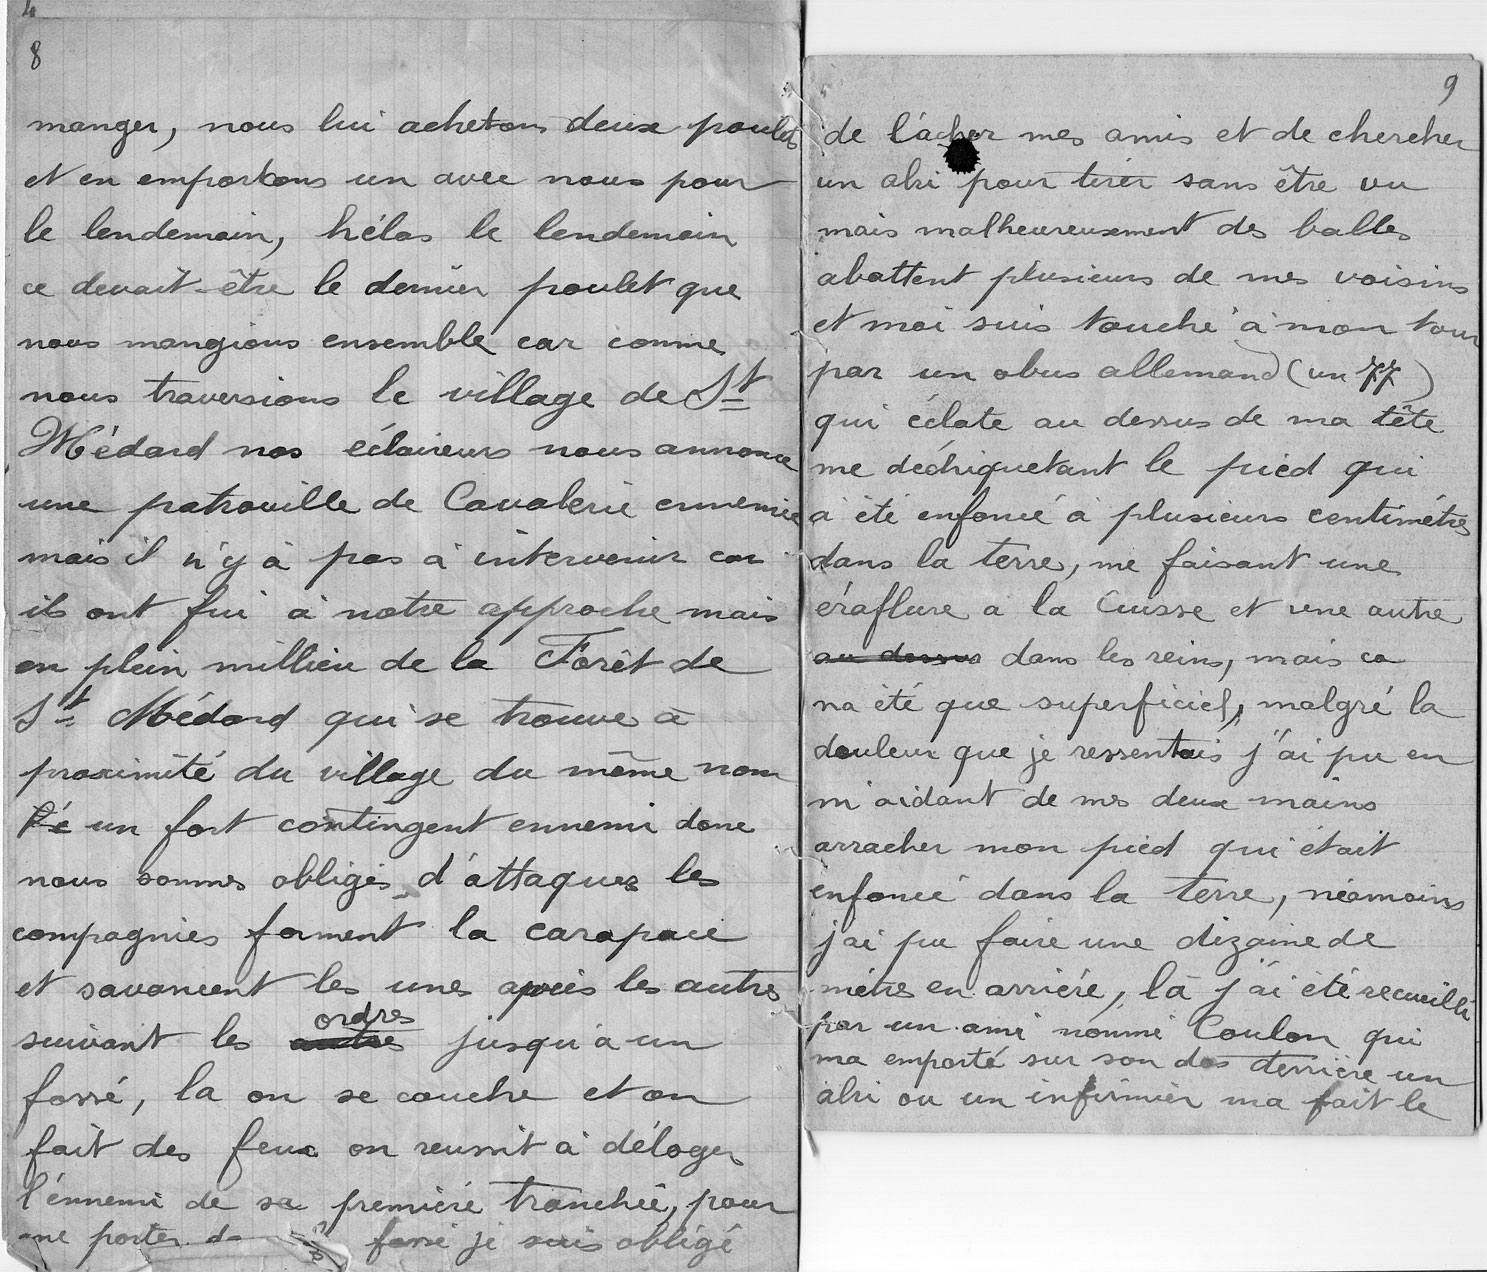 4
8
manger, nous lui achetons deux poulets
et en emportons un avec nous pour
le lendemain, hélas le lendemain
ce devait-être le dernier poulet que
nous mangions ensemble car comme
nous traversions le village de St
Médard nos éclaireurs nous annonce
une patrouille de Cavalerie ennemie
mais il n'y à pas à intervenir car
ils ont fui à notre approche mais
en plein millieu de la Forêt de
St Médard qui se trouve à
proximité du village du même nom
un fort contingent ennemi donc
nous sommes obligés d'áttaquer les
compagnies forment la carapace
et savancent les unes après les autres
suivant les autres ordres jusqu'à un
fossé, la on se couche et on
fait des feux on reussit à déloger
l'énnemi de sa première tranchée, pour
me porter fossé je suis obligé
9
de lácher mes amis et de chercher
un abri pour tirer sans être vu
mais malheureusement des balles
abattent plusieurs de mes voisins
et moi suis touché à mon tour
par un obus allemand (un 77)
qui éclate au dessus de ma tête
me déchiquetant le pied qui
à été enfoncé à plusieurs centimétres
dans la terre, me faisant une
éraflure a la Cuisse et une autre
au dessus dans les reins, mais ca
na été que superficiel, malgré la
douleur que je ressentais j'ai pu en
m'aidant de mes deux mains
arracher mon pied qui était
enfoncé dans la terre, néamoins
j'ai pu faire une dizaine de
métres en arrière, là j'ai été recueilli
par un ami nommé Coulon qui
ma emporté sur son dos derrière un
abri ou un infirmier ma fait le